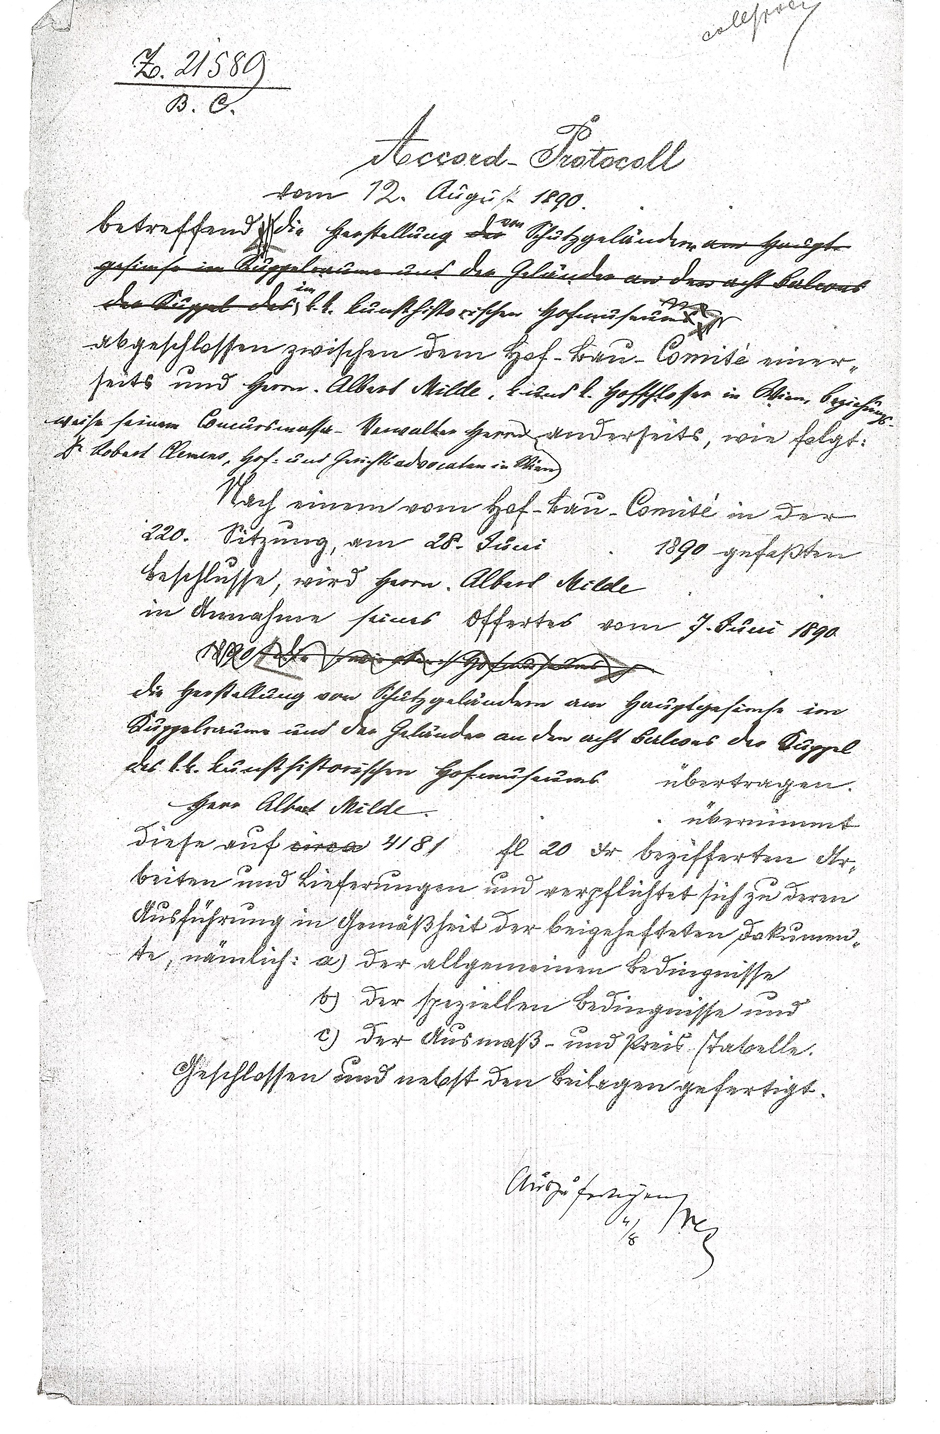 Z. 21589
B. C.
Accord-Protocoll
vom 12. August 1890.
betreffend die Herstellung der von Schutzgeländern am Haupt-
gesimse im Kuppelraume und der Geländer an den acht Balcons
der Kuppel des im k. k. kunsthistorischen Hofmuseums
abgeschlossen zwischen dem Hof-Bau-Comité einer-
seits und Herrn Albert Milde, k. und k. Hofschlosser in Wien, beziehungs-
weise seinem Concursmassa-Verwalter Herrn anderseits, wie folgt:
Dr. Robert Clemens, Hof- und Gerichtsadvocaten in Wien
Nach einem vom Hof-Bau-Comité in der
220. Sitzung, am 28. Juni 1890 gefaßten
Beschlusse, wird Herrn Albert Milde
in Annahme seines Offertes vom 7. Juni 1890
1890
die Herstellung von Schutzgeländern am Hauptgesimse im
Kuppelraume und der Geländer an den acht Balcons der Kuppel
des k. k. kunsthistorischen Hofmuseums übertragen.
Herr Albert Milde übernimmt
diese auf circa 4181 fl 20 Xr bezifferten Ar-
beiten und Lieferungen und verpflichtet sich zu deren
Ausführung in Gemäßheit der beigehefteten Dokumen-
te, nämlich: a) der allgemeinen Bedingnisse
b) der speziellen Bedingnisse und
c) der Ausmaß- und Preis-Tabelle.
Geschlossen und nebst den Beilagen gefertigt.
Auszufertigen
4/8